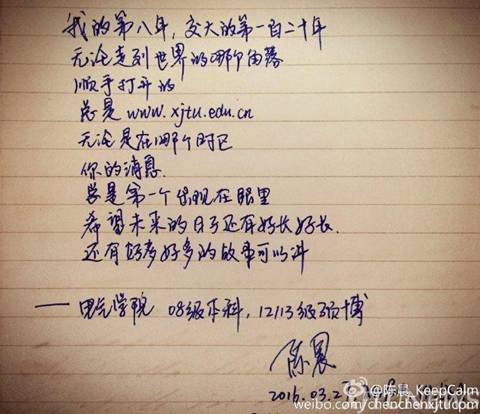 我的第八年，交大的第一百二十年
无论走到世界的哪个角落
顺手打开的
总是www.xjtu.edu.cn
无论是在哪个时区
你的消息
总是第一个出现在眼里
希望未来的日子还有好长好长
还有好多好多的故事可以讲
——电气学院 08级本科，12/13级硕博
陈晨
2016.03.2
@陈晨_KeepCalm
weibo.com/chenchenxjtucpm